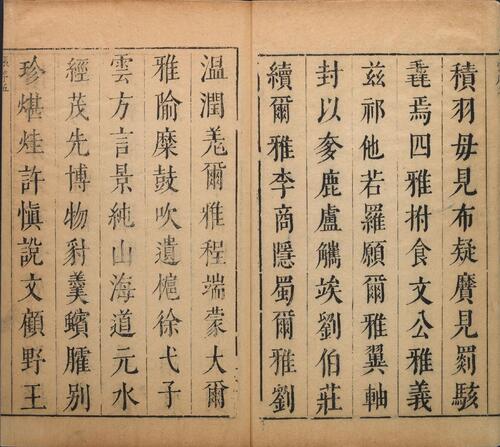 積羽毋見布疑黂見罽駭
毳焉四雅拊食文公雅義
茲祁他若羅願爾雅翼軸
封以鹿盧觿竢劉伯莊
續爾雅李商隱蜀爾雅劉
溫潤羗爾雅程端蒙大爾
雅隃糜鼓吹遺徐弋子
雲方言景純山海道元水
經茂先博物豺羹蠙臛別
珍煁烓許愼說文顧野王